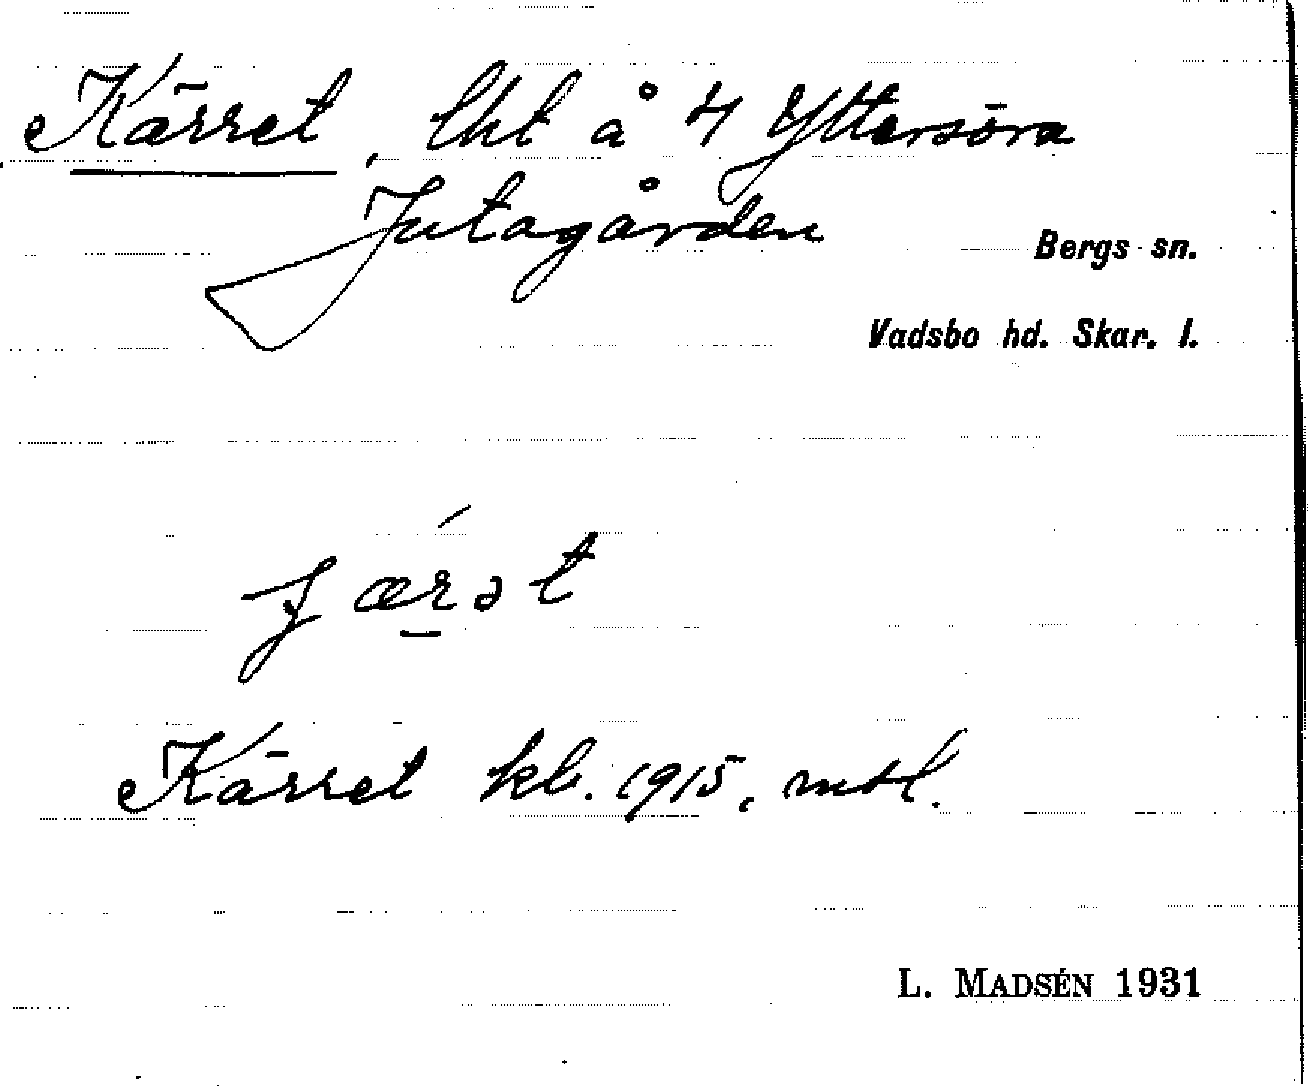 Kärret, lht å 4 Yttersöra
Jutagården
Bergs sn.
Vadsbo hd. Skar. l.
Kärret kb. 1915, mtl.
L. MADSÉN 1931